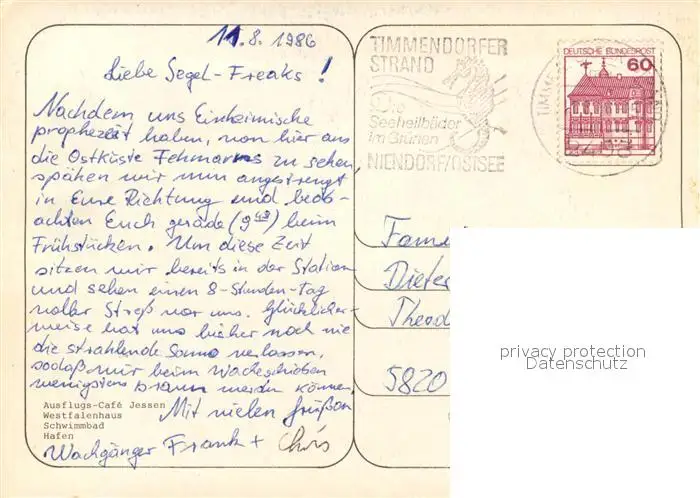 11.8.1986
Liebe Segel-Freaks!
Nachdem uns Einheimische
prophezeit haben, von hier aus
die Ostküste Fehmarns zu sehen,
spähen wir nun angestrengt
in Eure Richtung und beob-
achten Euch gerade (9 43) beim
Frühstücken. Um diese Zeit
sitzen wir bereits in der Station
und sehen einen 8-Stunden-Tag
voller Streß vor uns. Glücklicher-
weise hat uns bisher noch nie
die strahlende Sonne verlassen,
sodaß wir beim Wacheschieben
wenigstens braun werden können.
Mit vielen Grüßen
Wachgänger Frank + Chris
Ausflugs-Café Jessen
Westfalenhaus
Schwimmbad
Hafen
TIMMENDORFER
STRAND
Seeheilbäder
im Grünen
NIENDORF/OSTSEE
DEUTSCHE BUNDESPOST
60
TIMME
Fam
Dieter
Theod
5820
privacy protection
Datenschutz